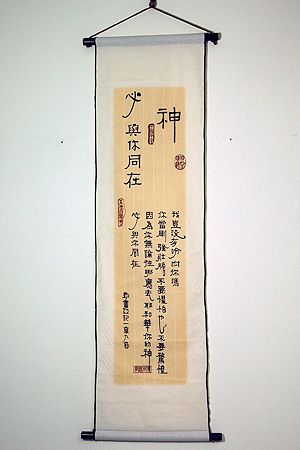 神
必與你同在
我豈沒有吩咐你嗎
你當剛強壯膽不要懼怕也不要驚惶
因為你無論往那裏去耶和華你的神
必與你同在
約書亞記一章九節